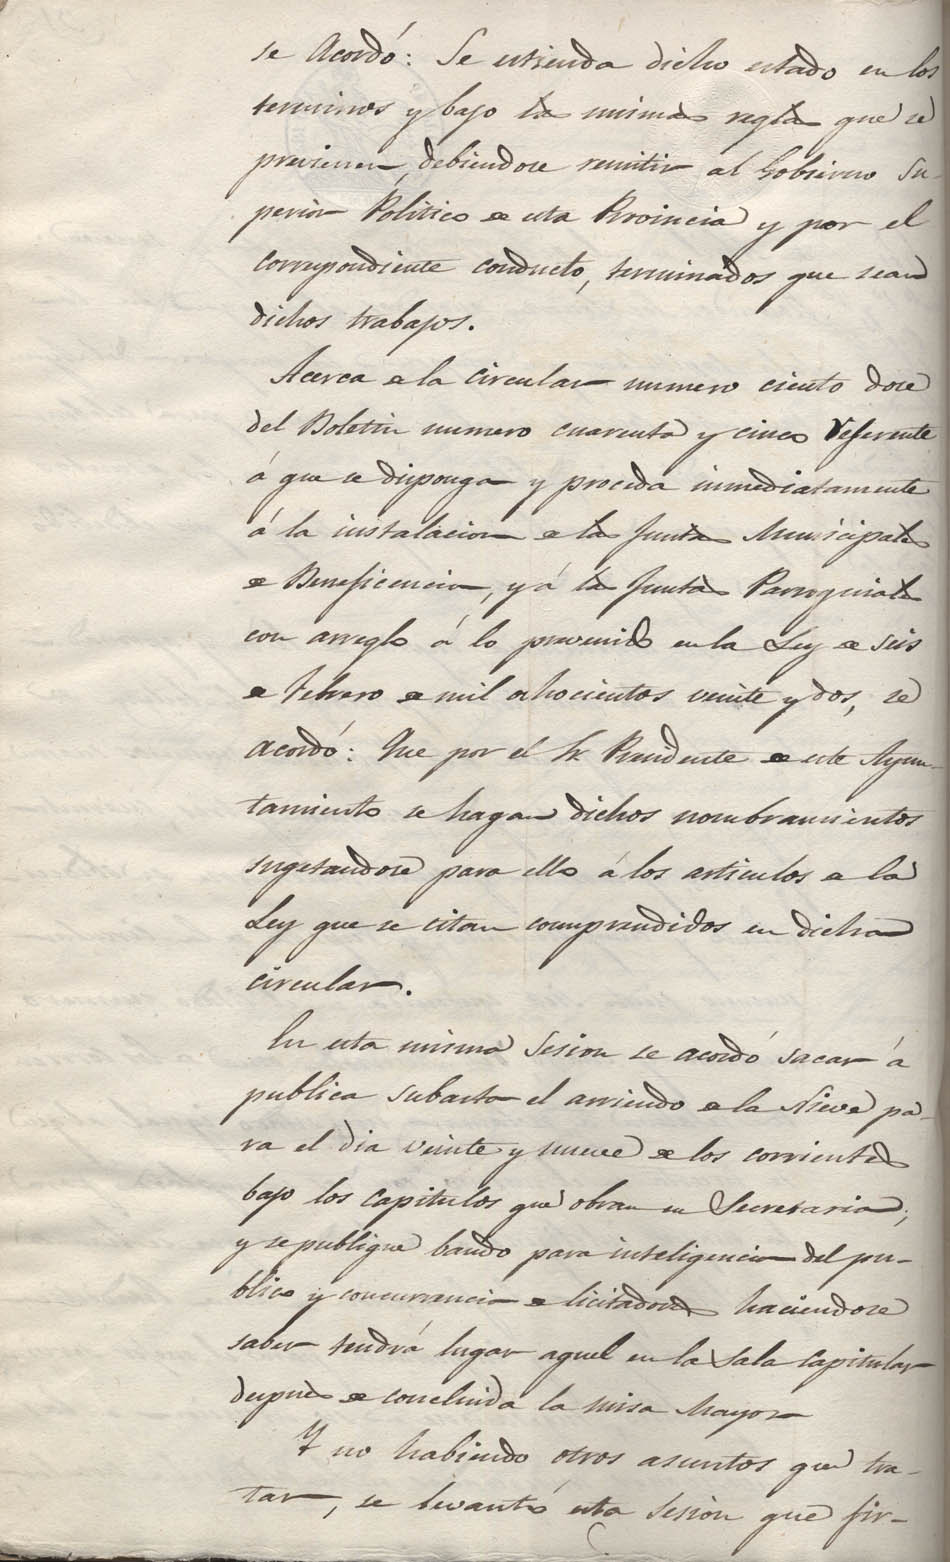 se Acordó: Se estienda dicho estado en los
terminos y bajo las mismas reglas que se
previenen, debiendose remitir al Gobierno Su-
perior Politico de esta Provincia y por el
correspondiente conducto, terminados que sean
dichos trabajos.
Acerca de la circular numero ciento doce
del Boletin numero cuarenta y cinco referente
á que se disponga y proceda inmediatamente
á la instalacion de las Juntas Municipales
de Beneficencia, y á las Juntas Parroquiales
con arreglo á lo prevenido en la Ley de seis
de Febrero de mil ochocientos veinte y dos, se
acordó: Que por el Sr. Presidente de este Ayun-
tamiento se hagan dichos nombramientos
sugetandose para ello á los articulos de la
Ley que se citan comprendidos en dicha
circular.
En esta misma Sesion se acordó sacar á
publica subasta el arriendo de la Nieve pa-
ra el dia veinte y nueve de los corrientes
bajo los capitulos que obran en Secretaria;
y se publique bando para inteligencia del pu-
blico y concurrencia de licitadores haciendose
saber tendrá lugar aquel en la Sala Capitular
despues de concluida la misa Mayor
Y no habiendo otros asuntos que tra-
tar, se levantó esta Sesion que fir-